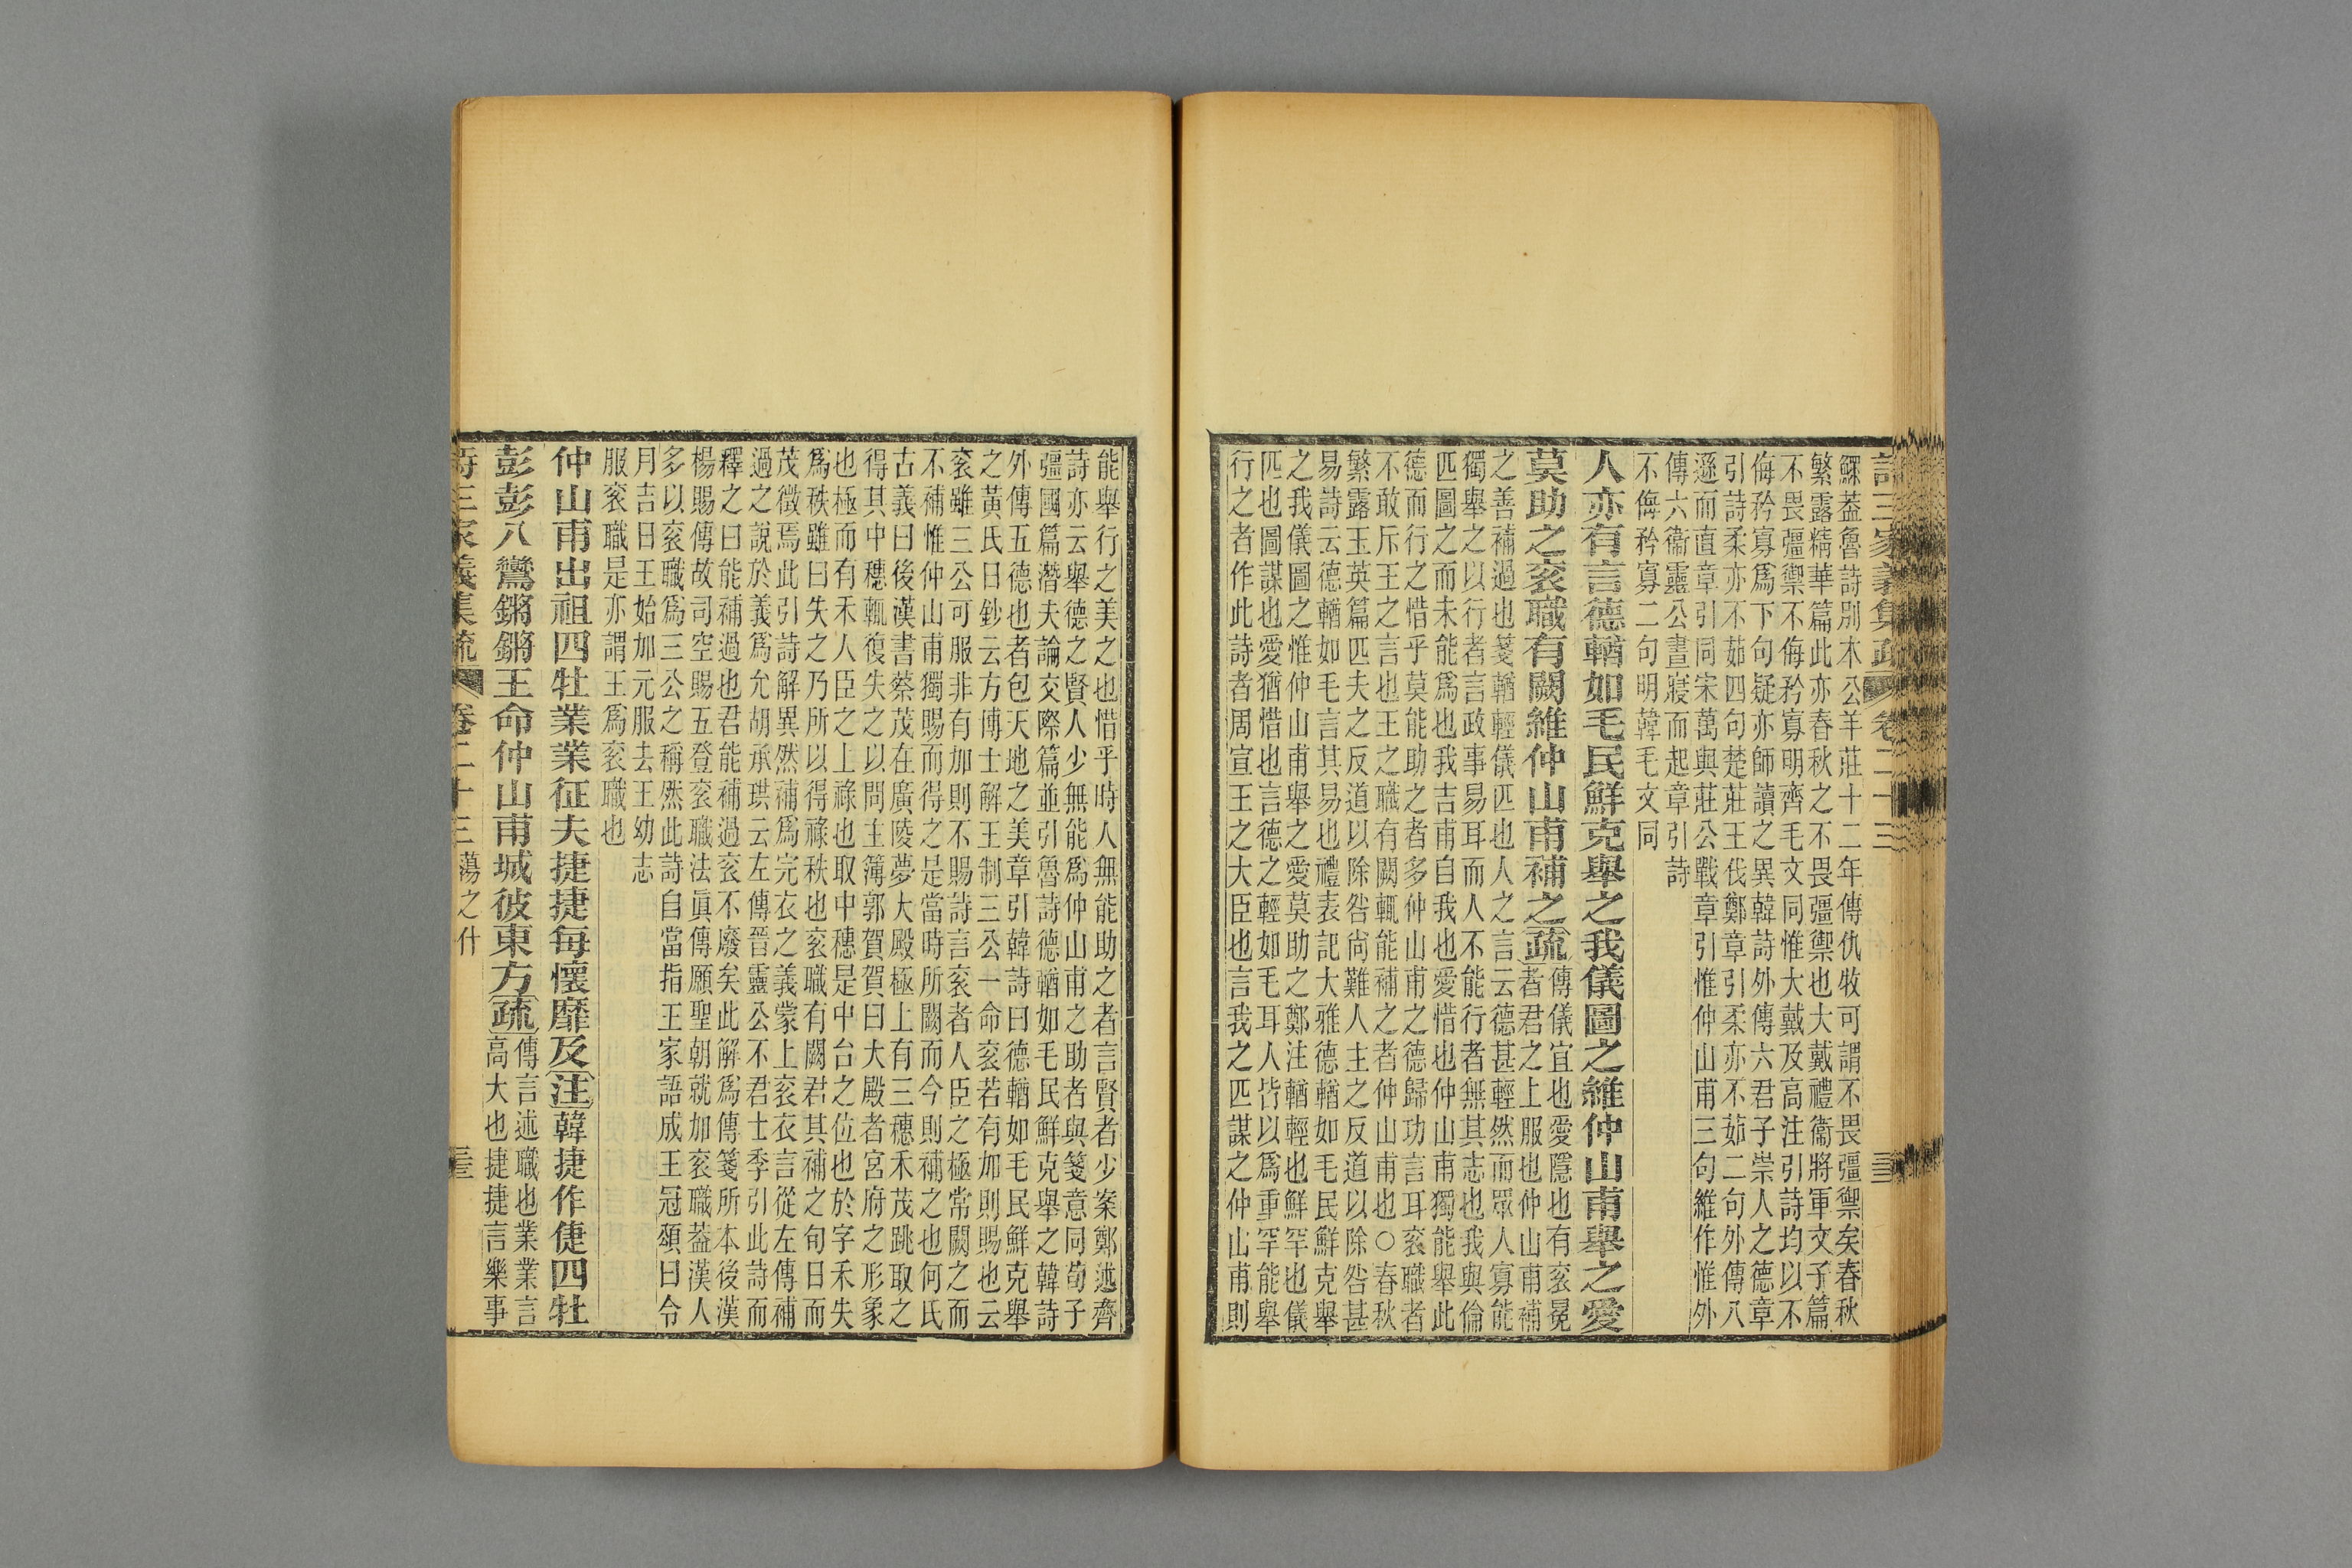 詩三家義集疏 卷二十三
鰥葢魯詩別本公羊莊十二年傳仇牧可謂不畏彊禦矣春秋
繁露精華篇此亦春秋之不畏彊禦也大戴禮衞將軍文子篇
不畏彊禦不侮矜寡明齊毛文同惟大戴及高注引詩均以不
侮矜寡爲下句疑亦師讀之異韓詩外傳六君子崇人之德章
引詩柔亦不茹四句楚莊王伐鄭章引柔亦不茹二句外傳八
遜而直章引同宋萬與莊公戰章引惟仲山甫三句維作惟外
傳六衞靈公晝寢而起章引詩
不侮矜寡二句明韓毛文同
人亦有言德輶如毛民鮮克舉之我儀圖之維仲山甫舉之愛
莫助之袞職有闕維仲山甫補之疏
傳儀宜也愛隱也有袞冕
者君之上服也仲山甫補
之善補過也箋輶輕儀匹也人之言云德甚輕然而眾人寡能
獨舉之以行者言政事易耳而人不能行者無其志也我與倫
匹圖之而未能爲也我吉甫自我也愛惜也仲山甫獨能舉此
德而行之惜乎莫能助之者多仲山甫之德歸功言耳袞職者
不敢斥王之言也王之職有闕輒能補之者仲山甫也○春秋
繁露玉英篇匹夫之反道以除咎尙難人主之反道以除咎甚
易詩云德輶如毛言其易也禮表記大雅德輶如毛民鮮克舉
之我儀圖之惟仲山甫舉之愛莫助之鄭注輶輕也鮮罕也儀
匹也圖謀也愛猶惜也言德之輕如毛耳人皆以爲重罕能舉
行之者作此詩者周宣王之大臣也言我之匹謀之仲山甫則
能舉行之美之也惜乎時人無能助之者言賢者少案鄭述齊
詩亦云舉德之賢人少無能爲仲山甫之助者與箋意同荀子
彊國篇潛夫論交際篇並引魯詩德輶如毛民鮮克舉之韓詩
外傳五德也者包天地之美章引韓詩曰德輶如毛民鮮克舉
之黃氏日鈔云方博士解王制三公一命袞若有加則賜也云
袞雖三公可服非有加則不賜詩言袞者人臣之極常闕之而
不補惟仲山甫獨賜而得之是當時所闕而今則補之也何氏
古義曰後漢書蔡茂在廣陵夢大殿極上有三穗禾茂跳取之
得其中穗輒復失之以問主簿郭賀賀曰大殿者宮府之形象
也極而有禾人臣之上祿也取中穗是中台之位也於字禾失
爲秩雖曰失之乃所以得祿秩也袞職有闕君其補之旬日而
茂徵焉此引詩解異然補爲完衣之義蒙上袞衣言從左傳補
過之說於義爲允胡承珙云左傳晉靈公不君士季引此詩而
釋之曰能補過也君能補過袞不廢矣此解爲傳箋所本後漢
楊賜傳故司空賜五登袞職法眞傳願聖朝就加袞職葢漢人
多以袞職爲三公之稱然此詩自當指王家語成王冠頌曰令
月吉日王始加元服去王幼志
服袞職是亦謂王爲袞職也
仲山甫出祖四牡業業征夫捷捷每懷靡及注韓捷作倢四牡
彭彭八鸞鏘鏘王命仲山甫城彼東方疏
傳言述職也業業言
高大也捷捷言樂事
詩三家義集疏 卷二十三 蕩之什 三三